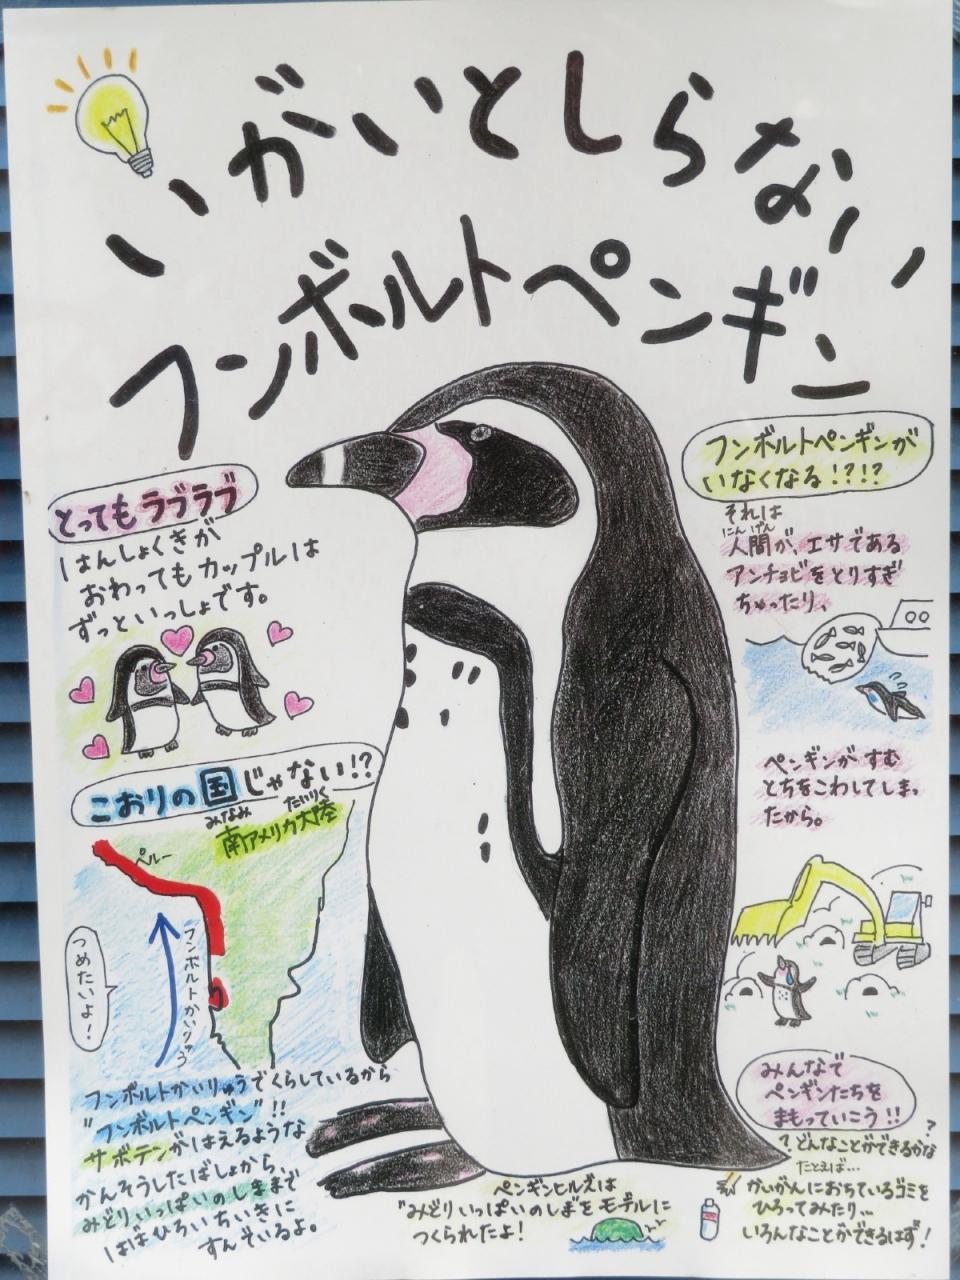 いがいとしらない
フンボルトペンギン
とってもラブラブ
はんしょくきが
おわってもカップルは
ずっといっしょです。
こおりの国じゃない!?
みなみ たいりく
南アメリカ大陸
ペルー
フンボルトかいりゅう
つめたいよ!
フンボルトかいりゅうでくらしているから
"フンボルトペンギン"!!
サボテンがはえるような
かんそうしたばしょから、
みどりいっぱいのしまで
はばひろいちいきに
すんでいるよ。
フンボルトペンギンが
いなくなる!?!?
それは
にんげん
人間が、エサである
アンチョビをとりすぎ
ちゃったり、
ペンギンがすむ
とちをこわしてしまっ
たから。
みんなで
ペンギンたちを
まもっていこう!!
?どんなことができるかな?
たとえば…
かいがんにおちているゴミを
ひろってみたり…
いろんなことができるはず!
ペンギンヒルズは
"みどりいっぱいのしま"をモデルに
つくられたよ!